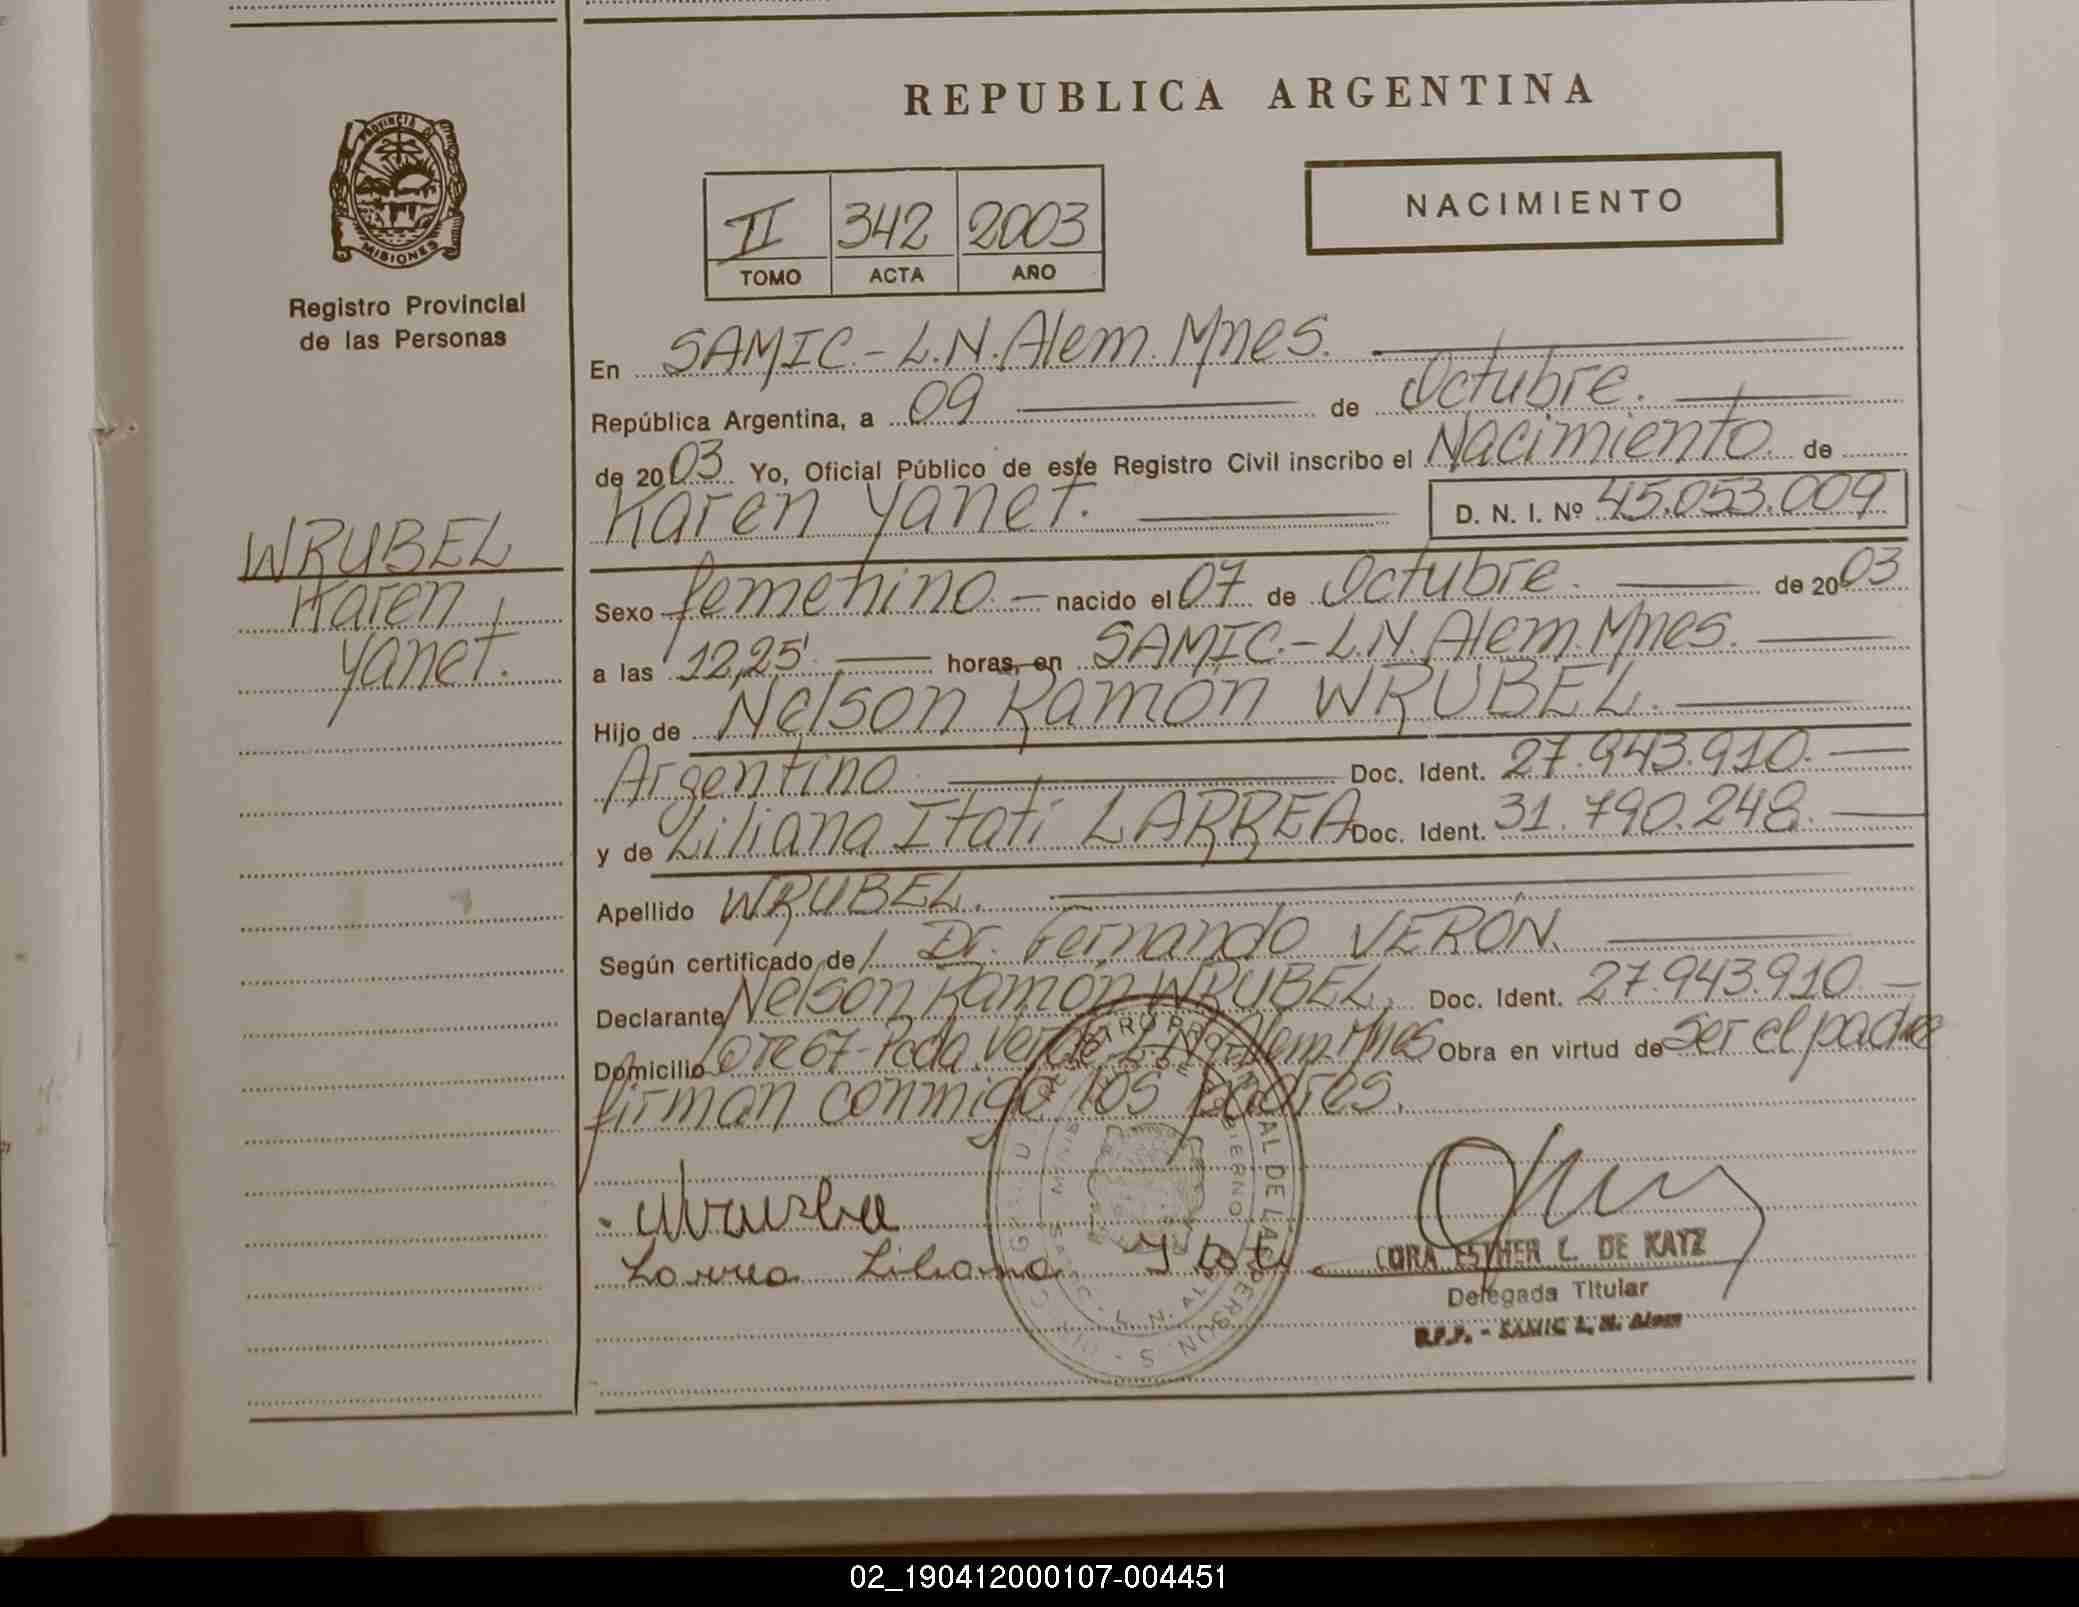 REPUBLICA ARGENTINA
PROVINCIA D
MISIONES
Registro Provincial
de las Personas
II 342 2003
TOMO ACTA AÑO
NACIMIENTO
En SAMIC.- L.N.Alem.Mnes.
República Argentina, a 09 de Octubre.
de 2003 Yo, Oficial Público de este Registro Civil inscribo el Nacimiento. de
Karen Yanet. D. N. I. Nº 45.053.009
WRUBEL
Karen
Yanet.
Sexo femenino.- nacido el 07 de Octubre. de 2003
a las 12,25' horas, en SAMIC.-L.N.Alem.Mnes.
Hijo de Nelson Ramón WRUBEL.
Argentino. Doc. Ident. 27.943.910.
y de Liliana Itatí LARREA Doc. Ident. 31.790.248.
Apellido WRUBEL.
Según certificado de/ Dr. Fernando VERÓN.
Declarante Nelson Ramón WRUBEL. Doc. Ident. 27.943.910.-
Domicilio Lote 67-Pcda. Verde. L.N. Alem.Mnes Obra en virtud de ser el padre
firman conmigo los padres.
Larrea Liliana Itati
CORA ESTHER L. DE KATZ
Delegada Titular
R.P.P. - SAMIC L. N. Alem
02_190412000107-004451